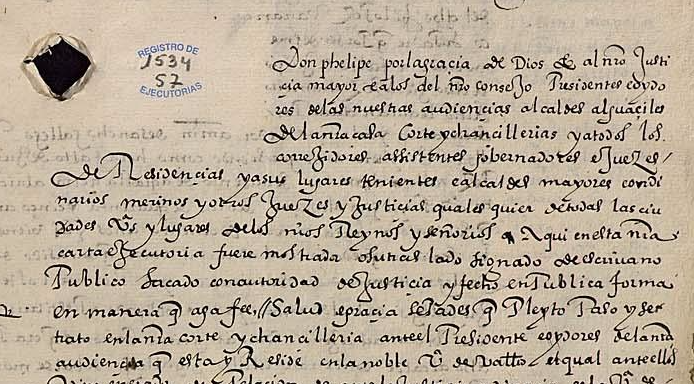 REGISTRO DE
1534
52
EJECUTORIAS
Don phelipe por la gracia de Dios & al nro Justi
cia mayor e a los del nro consejo Presidentes e oydo
res de las nuestas audiencias alcaldes alguaciles
de la nra casa Corte y chancillerias y a todos los
corregidores assistentes gobernadores e Juezes /
de Residencias y a sus lugares tenientes e alcaldes mayores e ordi
narios merinos y otros Juezes y Justicias quales quier de todas las ciu
dades Vs y lugares de los nros Reynos y señorios a qui en esta nra
carta executoria fuere mostrada o su traslado signado de escrivano
Publico sacado con autoridad de Justicia y fecho en Publica forma
en manera q aga fee // Salud e gracia sepades q Pleyto Paso y se
trato en la nra corte y chancilleria ante el Presidente e oydores de la nra
audiencia q esta y Reside en la noble Va de Vallid el qual ante ellos